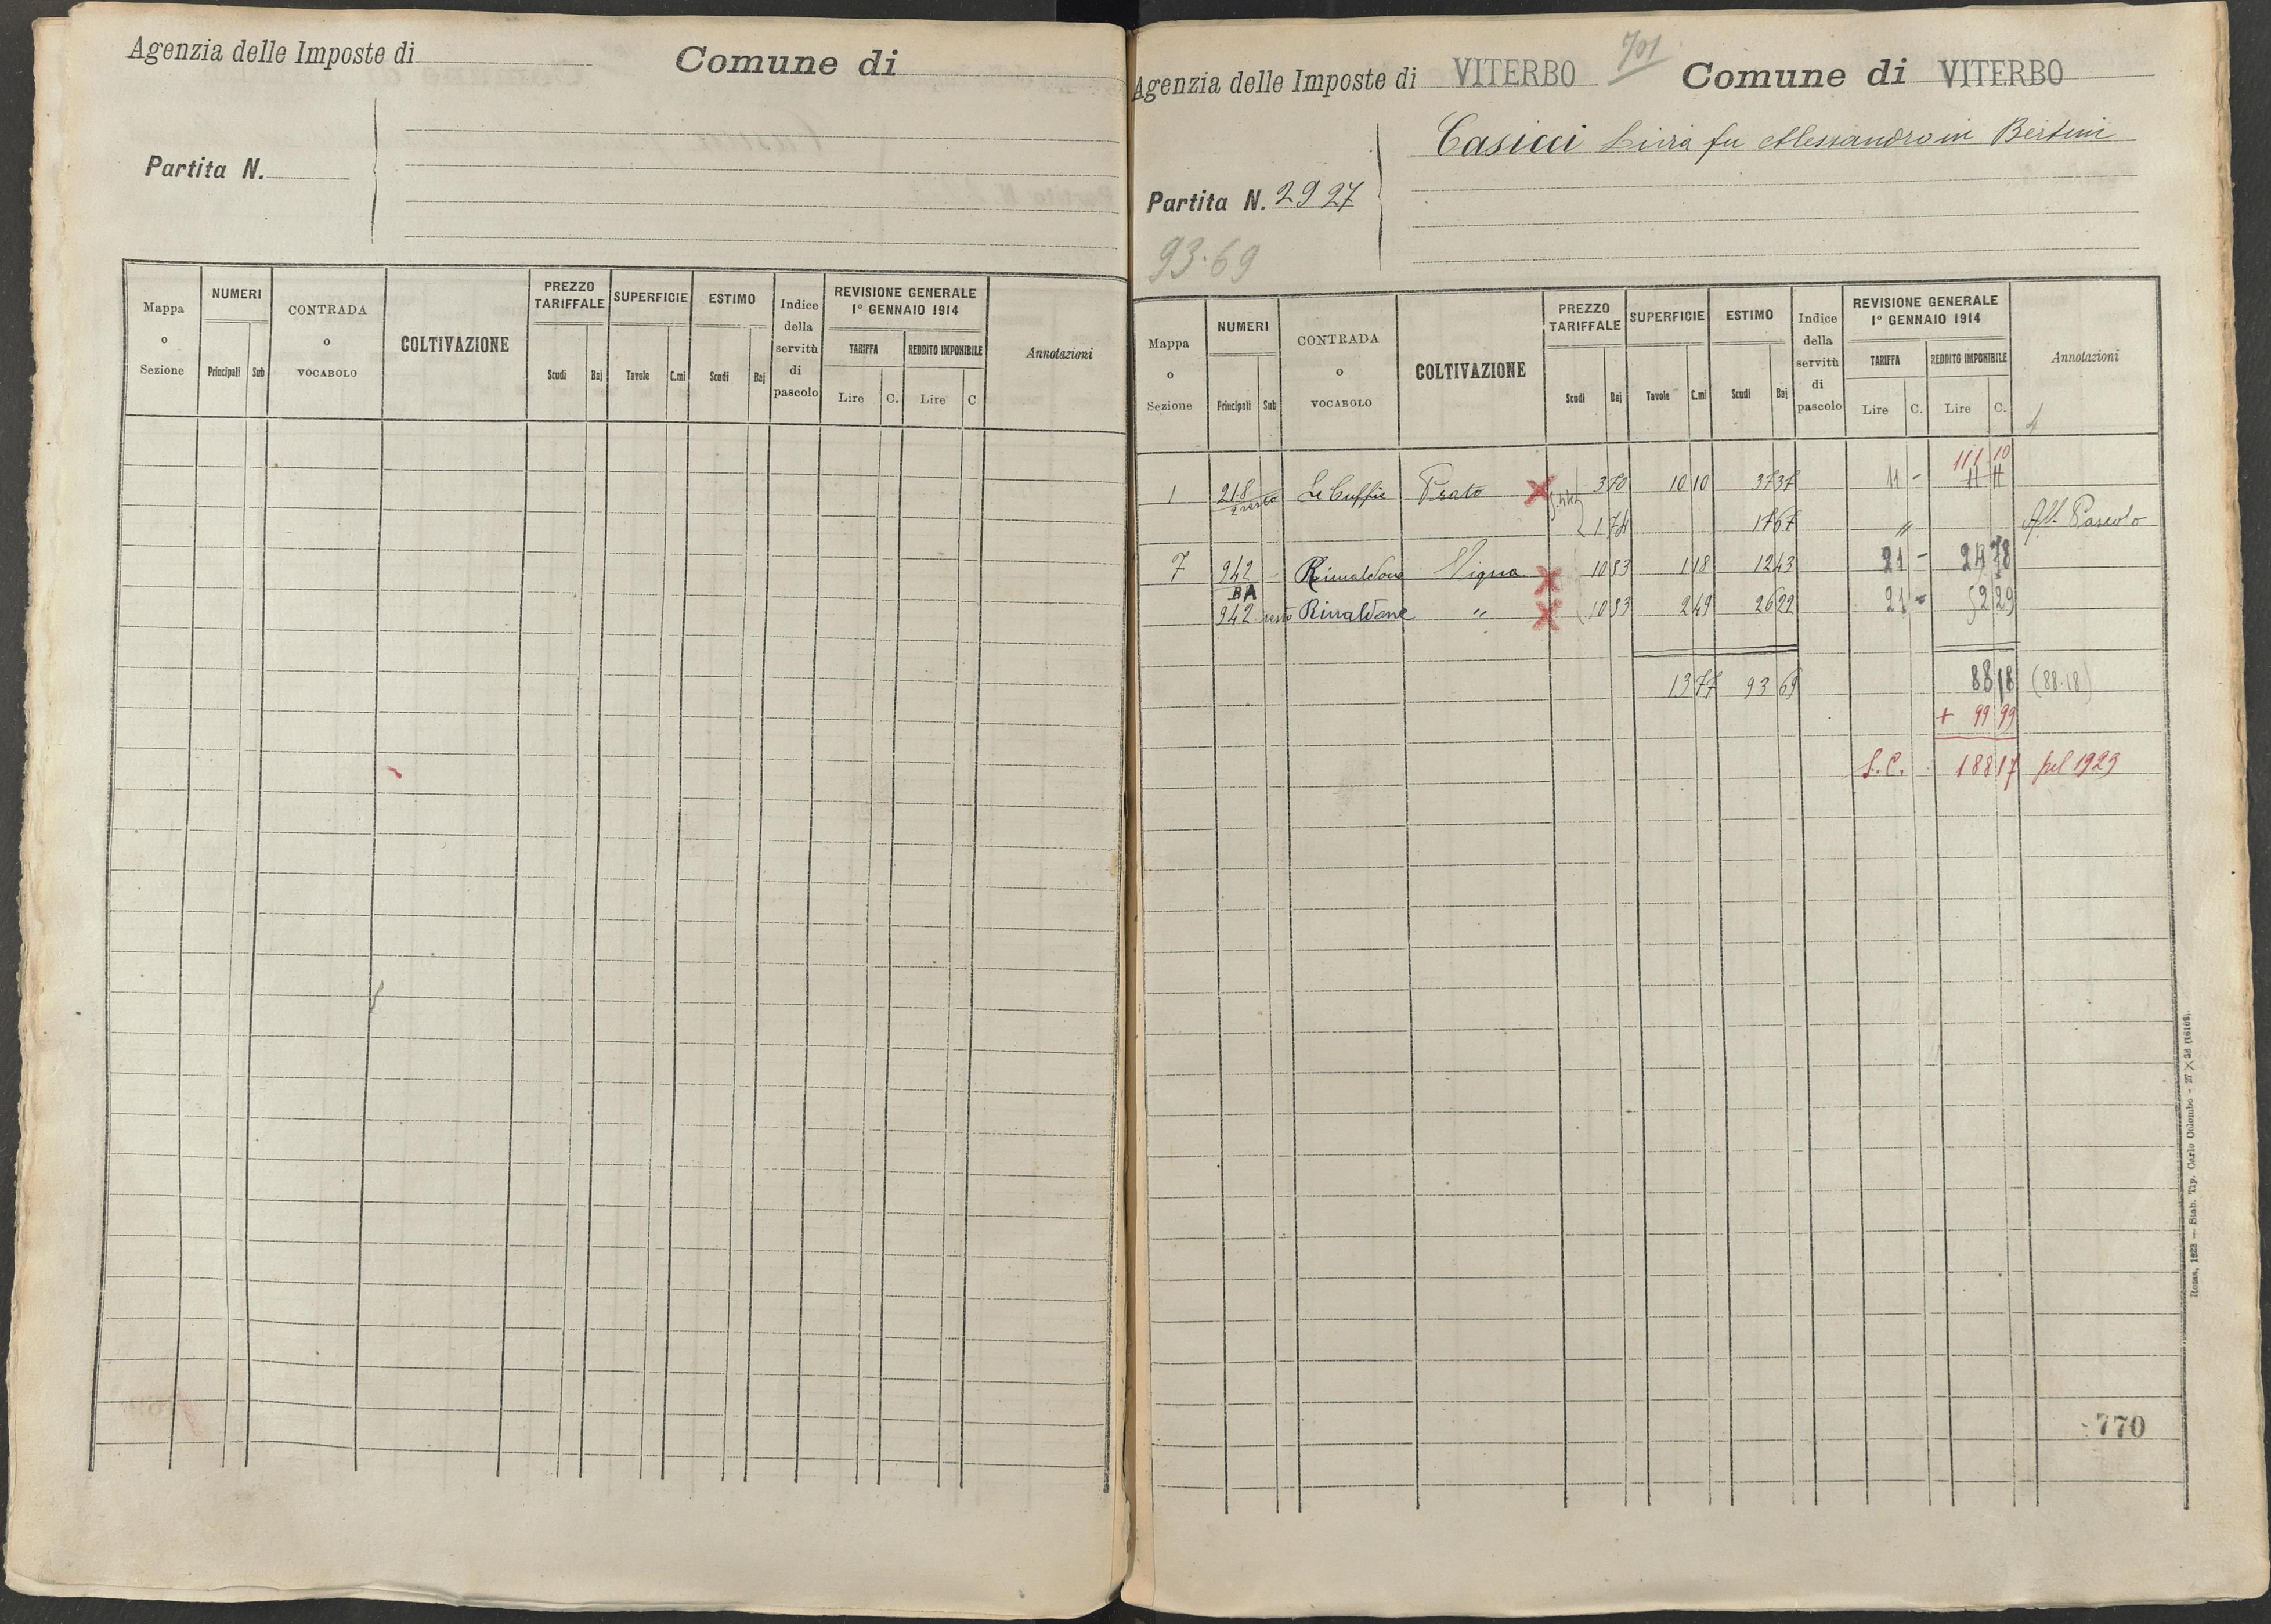 Agenzia delle Imposte di
Comune di
Partita N.
Mappa o Sezione
NUMERI
Principali
Sub
CONTRADA o VOCABOLO
COLTIVAZIONE
PREZZO TARIFFALE
Scudi
Baj
SUPERFICIE
Tavole
C.mi
ESTIMO
Scudi
Baj
Indice della servitù di pascolo
REVISIONE GENERALE
1° GENNAIO 1914
TARIFFA
REDDITO IMPONIBILE
Lire
C.
Lire
C
Annotazioni
701
Agenzia delle Imposte di VITERBO
Comune di VITERBO
Casicci Livia fu Alessandro in Bertini
Partita N. 2927
93.69
Mappa o Sezione
NUMERI
Principali
Sub
CONTRADA o VOCABOLO
COLTIVAZIONE
PREZZO TARIFFALE
Scudi
Baj
SUPERFICIE
Tavole
C.mi
ESTIMO
Scudi
Baj
Indice della servitù di pascolo
REVISIONE GENERALE
1° GENNAIO 1914
TARIFFA
REDDITO IMPONIBILE
Lire
C.
Lire
C.
Annotazioni
111 10
1 218 2 resto Le Cuffie Prato 3 70 10 10 37 37 11 - 11 11
1 74 17 67 " Pascolo
7 942 Rinaldone Vigna 10 53 1 18 12 43 21 - 24 78
BA
942 resto Rinaldone " 10 53 2 49 26 22 21 - 52 29
13 77 93 69 88 18 (88.18)
+ 99 99
S.C. 188 17 pel 1929
770
Roma, 1923 — Stab. Tip. Carlo Colombo - 27 X 38 (16108).